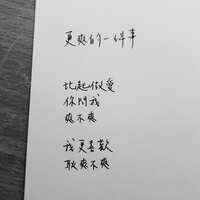 更爽的一件事
比起做愛
你問我
爽不爽
我更喜歡
耿爽不爽